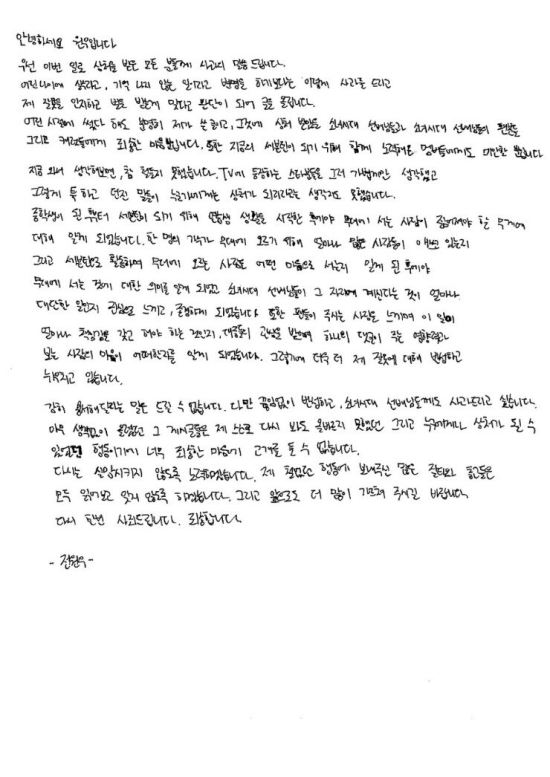 안녕하세요 원우입니다
우선 이번 일로 상처를 받은 모든 분들께 사과의 말씀 드립니다.
어린나이에 했다고, 기억 나지 않는 일이라고 변명을 하기보다는 이렇게 사과를 드리고
제 잘못을 인지하고 벌을 받는게 맞다고 판단이 되어 글을 올립니다.
어떤 시점에 썼다 해도 분명히 제가 쓴 글이고, 그것에 상처 받았을 소녀시대 선배님들과 소녀시대 선배님들의 팬분들
그리고 캐럿들에게 죄송한 마음뿐입니다. 또한 지금의 세븐틴이 되기 위해 함께 노력해온 멤버들에게도 미안할 뿐입니다
지금 와서 생각해보면, 참 철들지 못했습니다. TV에 등장하는 스타분들을 그저 가볍게만 생각했고
그렇게 툭하고 던진 말들이 누군가에게는 상처가 되리라고는 생각지도 못했습니다.
중학생이 된 후부터 세븐틴이 되기 위해 연습생 생활을 시작한 후에야 무대에 서는 사람이 짊어져야 할 무게에
대해 알게 되었습니다. 한 명의 가수가 무대에 오르기 위해 얼마나 많은 사람들이 애쓰고 있는지
그리고 세븐틴으로 활동하며 무대에 오르는 사람은 어떤 마음으로 서는지 알게 된 후에야
무대에 서는 것에 대한 의미를 알게 되었고 소녀시대 선배님들이 그 자리에 계신다는 것이 얼마나
대단한 일인지 진심으로 느끼고, 존경하게 되었습니다 또한 팬들이 주시는 사랑도 느끼며 이 일이
얼마나 책임감을 갖고 해야 하는 것인지, 대중들의 관심을 받으며 하나의 댓글이 주는 영향력과
보는 사람의 마음이 어떠한지를 알게 되었습니다. 그렇기에 더욱 더 제 잘못에 대해 반성하고
뉘우치고 있습니다.
감히 용서해달라는 말은 드릴 수 없습니다. 다만 끊임없이 반성하고, 소녀시대 선배님들께도 사과드리고 싶습니다.
아무 생각없이 올렸었고 그 게시글들은 제 스스로 다시 봐도 올바르지 못했던 그리고 누구에게나 상처가 될 수
있었던 행동이기에 너무 죄송한 마음에 고개를 들 수 없습니다.
다시는 실망시키지 않도록 노력하겠습니다. 제 철없던 행동에 보내주신 많은 질타와 충고들은
모두 읽어보고 잊지 않도록 하겠습니다. 그리고 앞으로도 더 많이 가르쳐 주시길 바랍니다.
다시 한번 사죄드립니다. 죄송합니다.
- 전원우 -